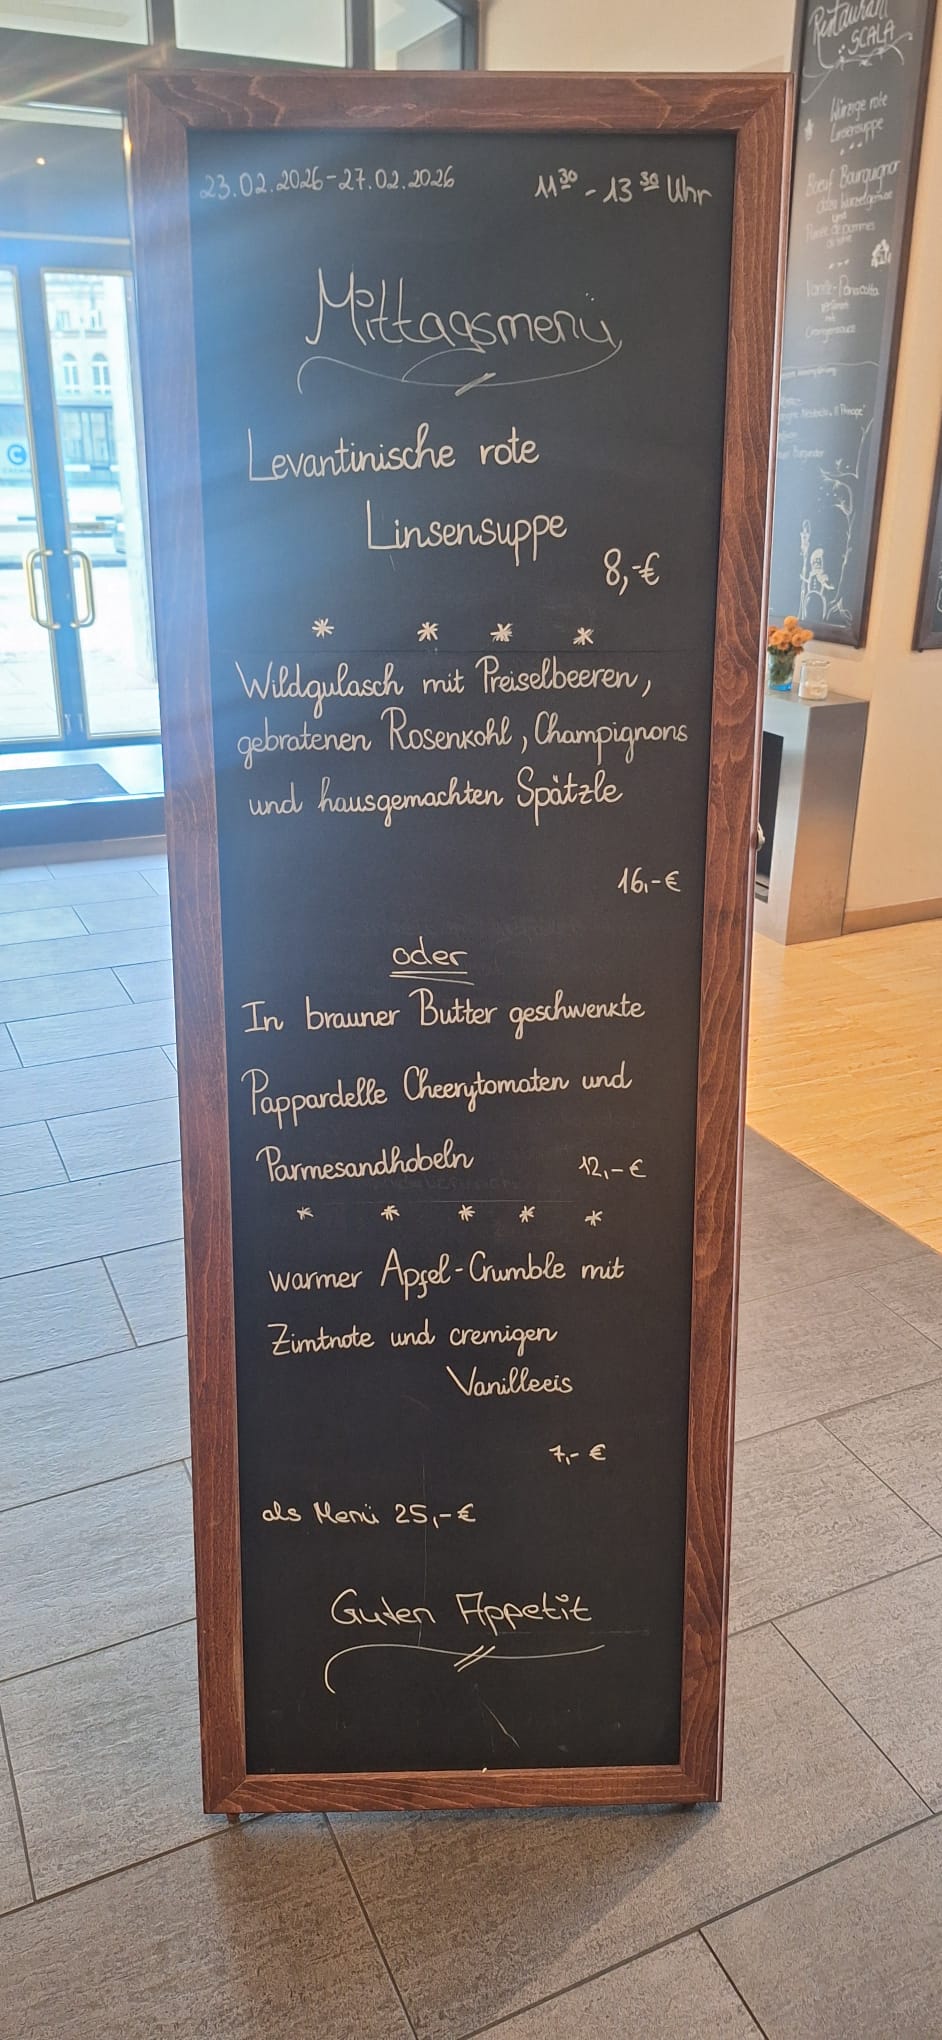 23.02.2026-27.02.2026
11³⁰ - 13³⁰ Uhr
Mittagsmenü
Levantinische rote
Linsensuppe
8,-€
* * * *
Wildgulasch mit Preiselbeeren,
gebratenen Rosenkohl, Champignons
und hausgemachten Spätzle
16,-€
oder
In brauner Butter geschwenkte
Pappardelle Cheerytomaten und
Parmesandhobeln 12,-€
* * * * *
warmer Apfel-Crumble mit
Zimtnote und cremigen
Vanilleeis
7,- €
als Menü 25,-€
Guten Appetit
Restaurant
SCALA
Würzige rote
Linsensuppe
Boeuf Bourguignon
dazu Wurzelgemüse
und
Orangensauce